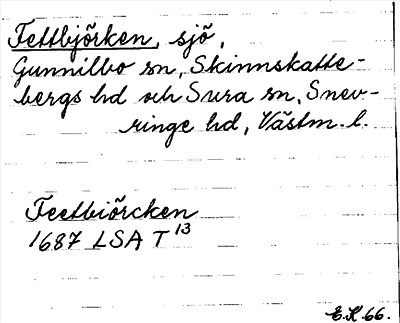 Fettbjörken, sjö,
Gunnilbo sn, Skinnskatte-
bergs hd och Sura sn, Snev-
ringe hd, Västm. l.
Feetbiörcken
1687 LSA T 13
E.K. 66.